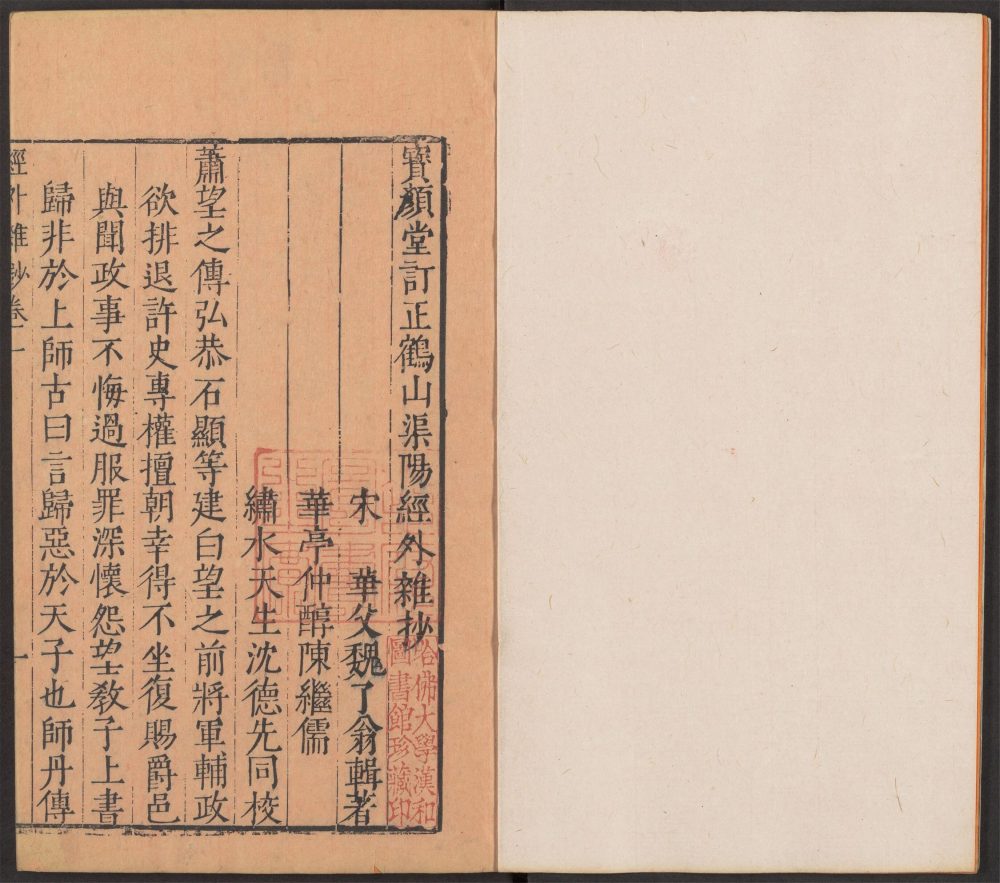 寶顏堂訂正鶴山渠陽經外雜抄
宋 華父魏了翁輯著
華亭仲醇陳繼儒
繡水天生沈德先同校
蕭望之傳弘恭石顯等建白望之前將軍輔政
欲排退許史專權擅朝幸得不坐復賜爵邑
與聞政事不悔過服罪深懷怨望敎子上書
歸非於上師古曰言歸惡於天子也師丹傳
經外雜抄卷一
一
哈佛大學漢和
圖書館珍藏印